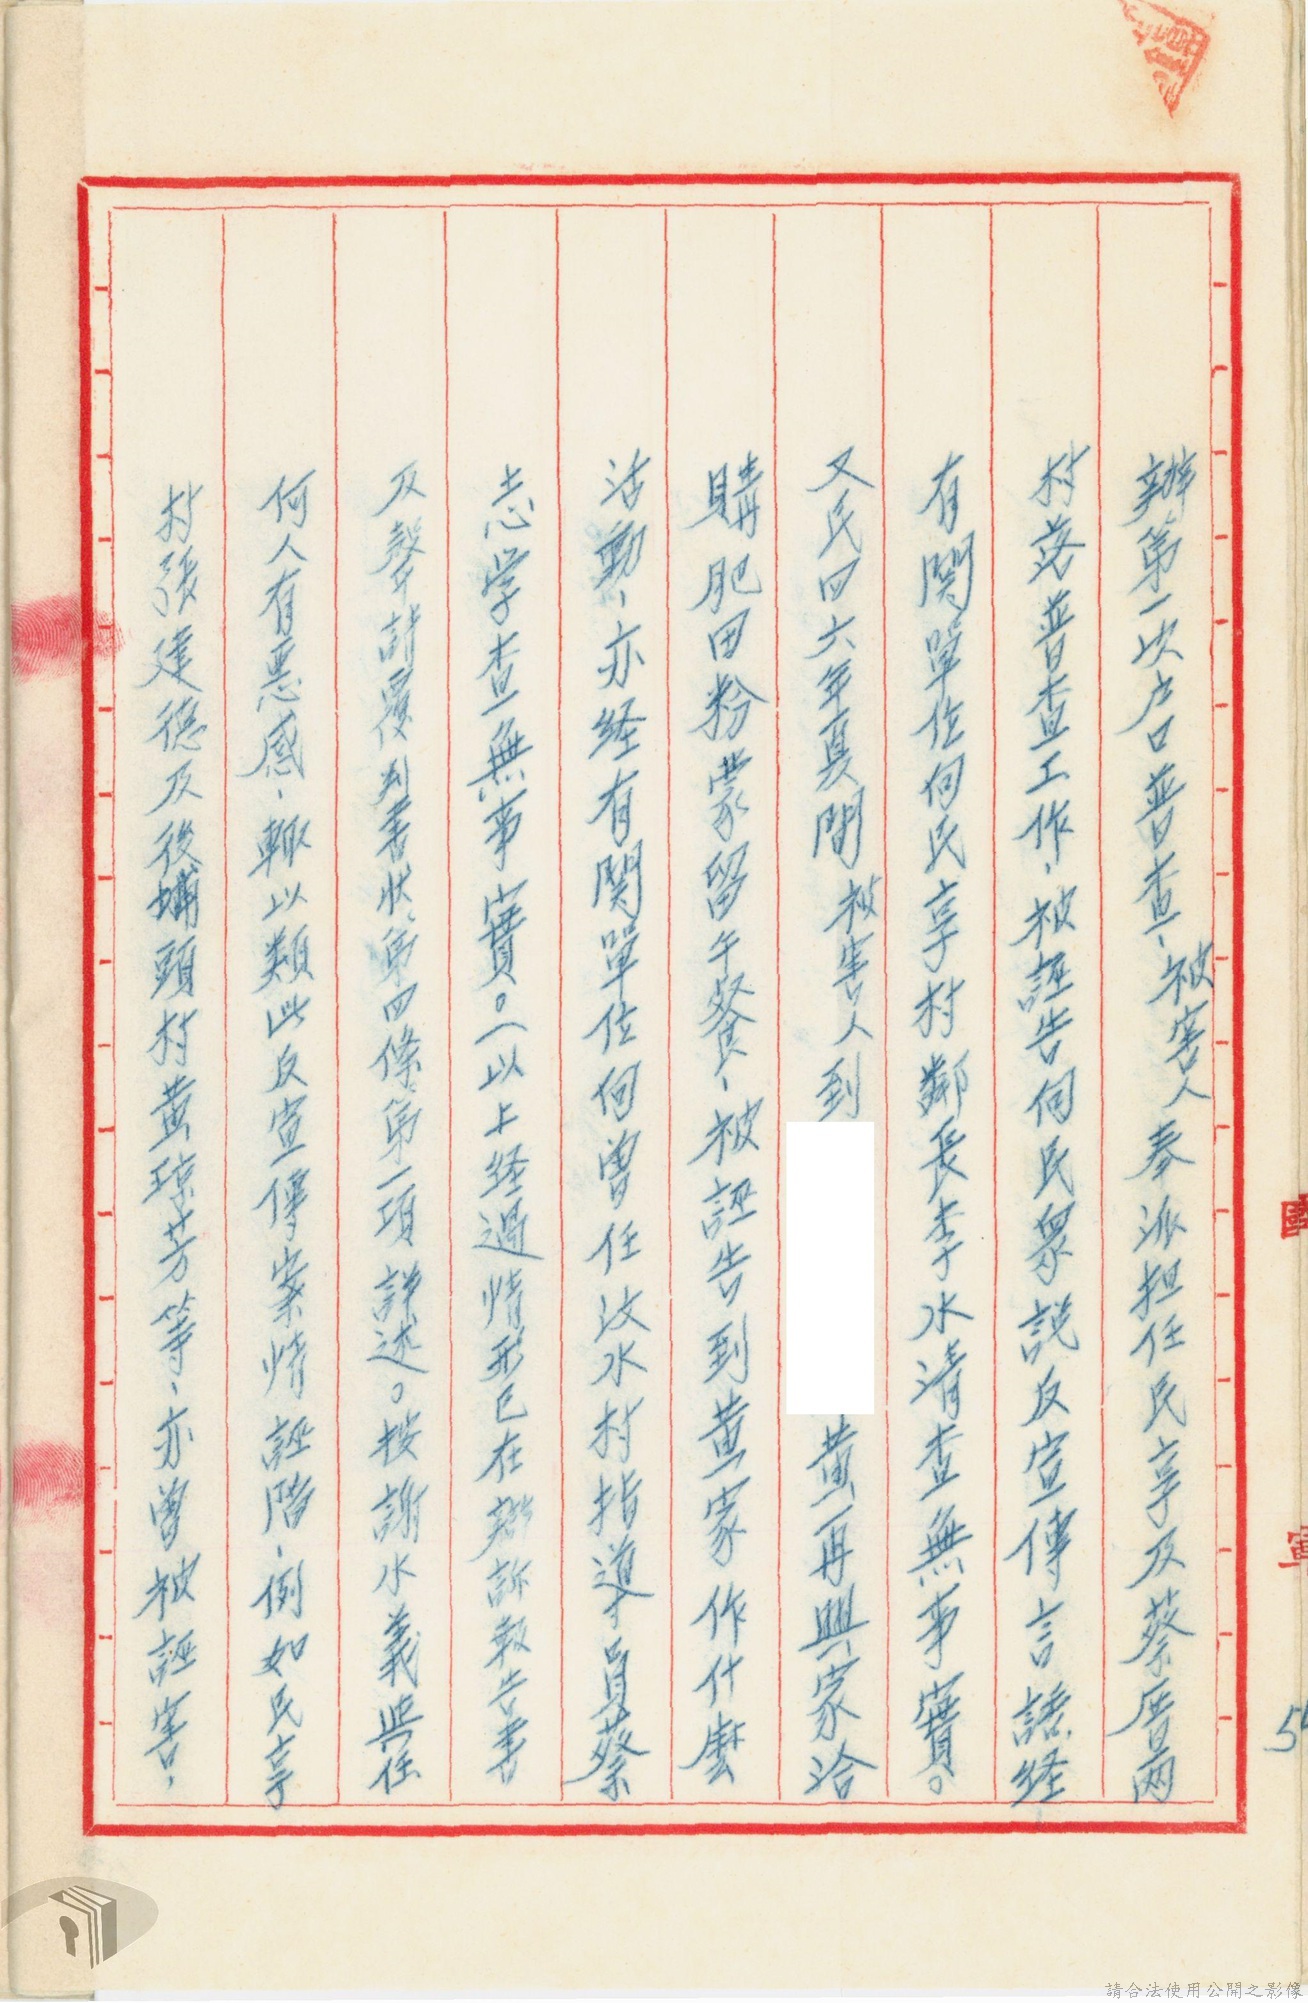 辦第一次户口普查、被害人奉派担任民享及蔡厝兩
村落普查工作、被誣告向民眾説反宣傳言語経
有関單位向民享村鄰長李水清查無事實。
又民四六年夏間被害人到　黄再興家洽
購肥田粉蒙留午餐、被誣告到黄家作什麼
活動、亦経有関單位向曽任汶水村指導員蔡
志学查無事實。（以上経過情形已在辯訴報告書
及聲請覆判書狀第四條第一項詳述。按謝水義與任
何人有惡感、輙以類此反宣傳案情誣陷、例如民享
村張建德及後埔頭村黄琼芳等、亦曽被誣害，
54
請合法使用公開之影像